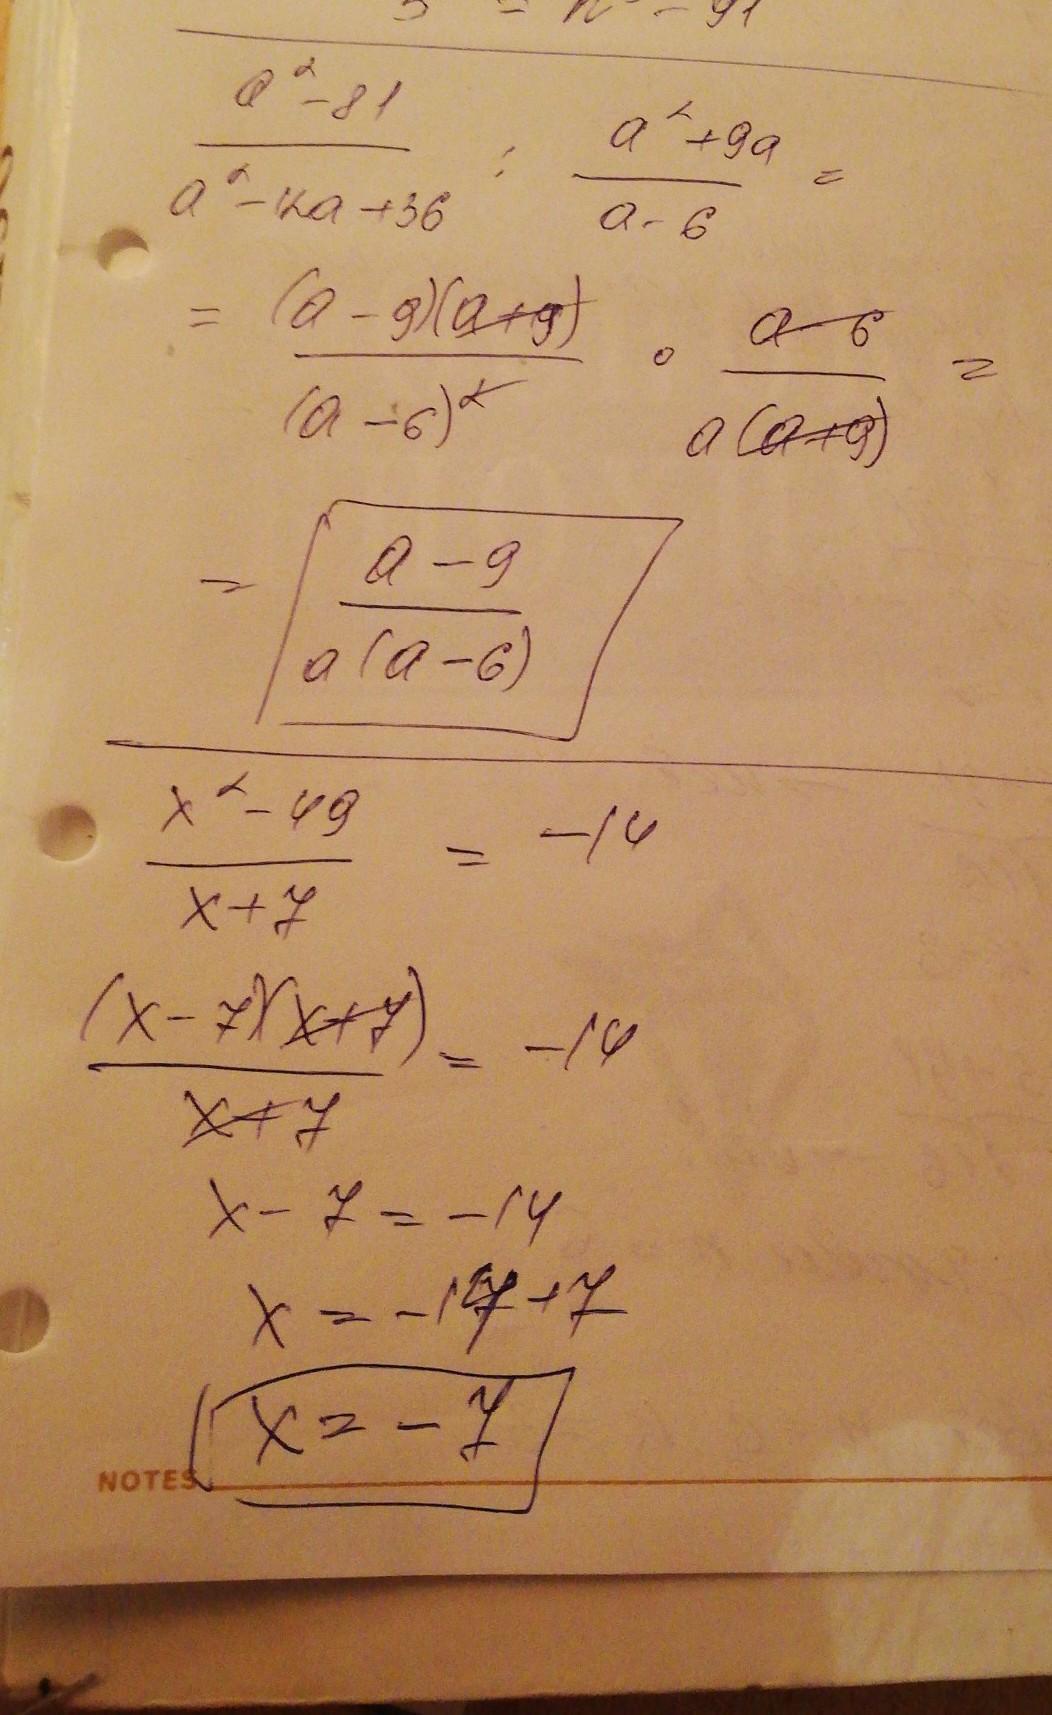 a²-81 / a²-12a+36 : a²+9a / a-6 =
= (a-9)(a+9) / (a-6)² ∘ a-6 / a(a+9) =
= a-9 / a(a-6)
x²-49 / x+7 = -14
(x-7)(x+7) / x+7 = -14
x-7=-14
x=-14+7
x=-7
NOTES